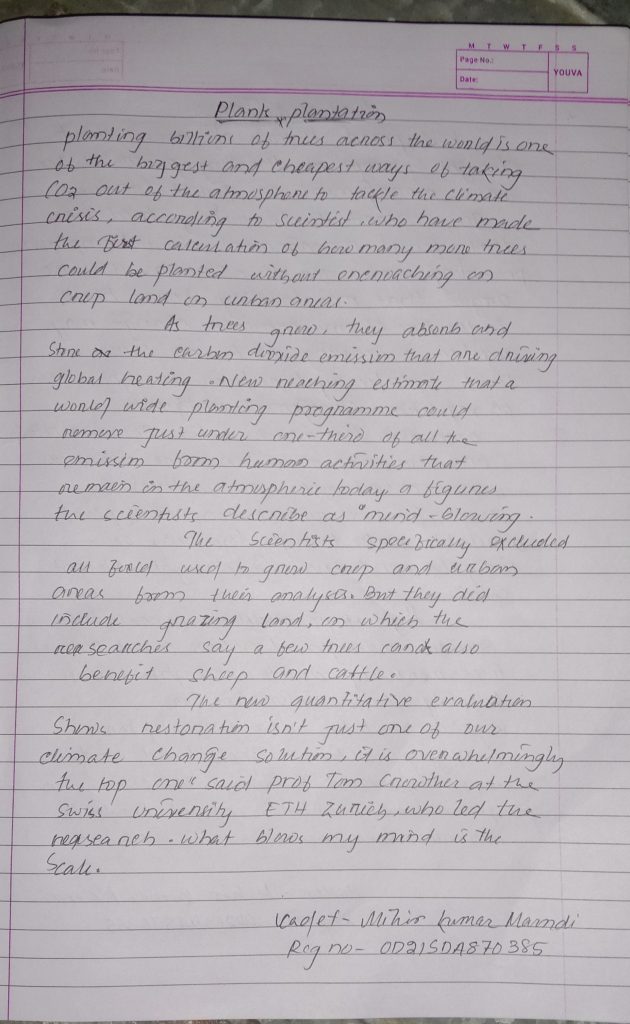 M T W T F S S
Page No.:
Date:
YOUVA
Plank plantation
planting billions of trees across the world is one
of the biggest and cheapest ways of taking
CO2 out of the atmosphere to tackle the climate
crisis, according to scientist, who have made
the first calculation of how many more trees
could be planted without encroaching on
crop land or urban areas.
As trees grow, they absorb and
store the carbon dioxide emission that are driving
global heating. New reaching estimate that a
world wide planting programme could
remove just under one-third of all the
emission from human activities that
remain in the atmospheric today a figures
the scientists describe as "mind-blowing.
The Scientists specifically excluded
all used to grow crop and urban
areas from their analysis. But they did
include grazing land, on which the
researches say a few trees can also
benefit sheep and cattle.
The new quantitative evaluation
Shows restoration isn't just one of our
climate change solution, it is overwhelmingly
the top one" said prof Tom Crowther at the
Swiss university ETH Zurich, who led the
research. what blows my mind is the
Scale.
Cadet- Mihir Kumar Marndi
Reg no- OD21SDA870385